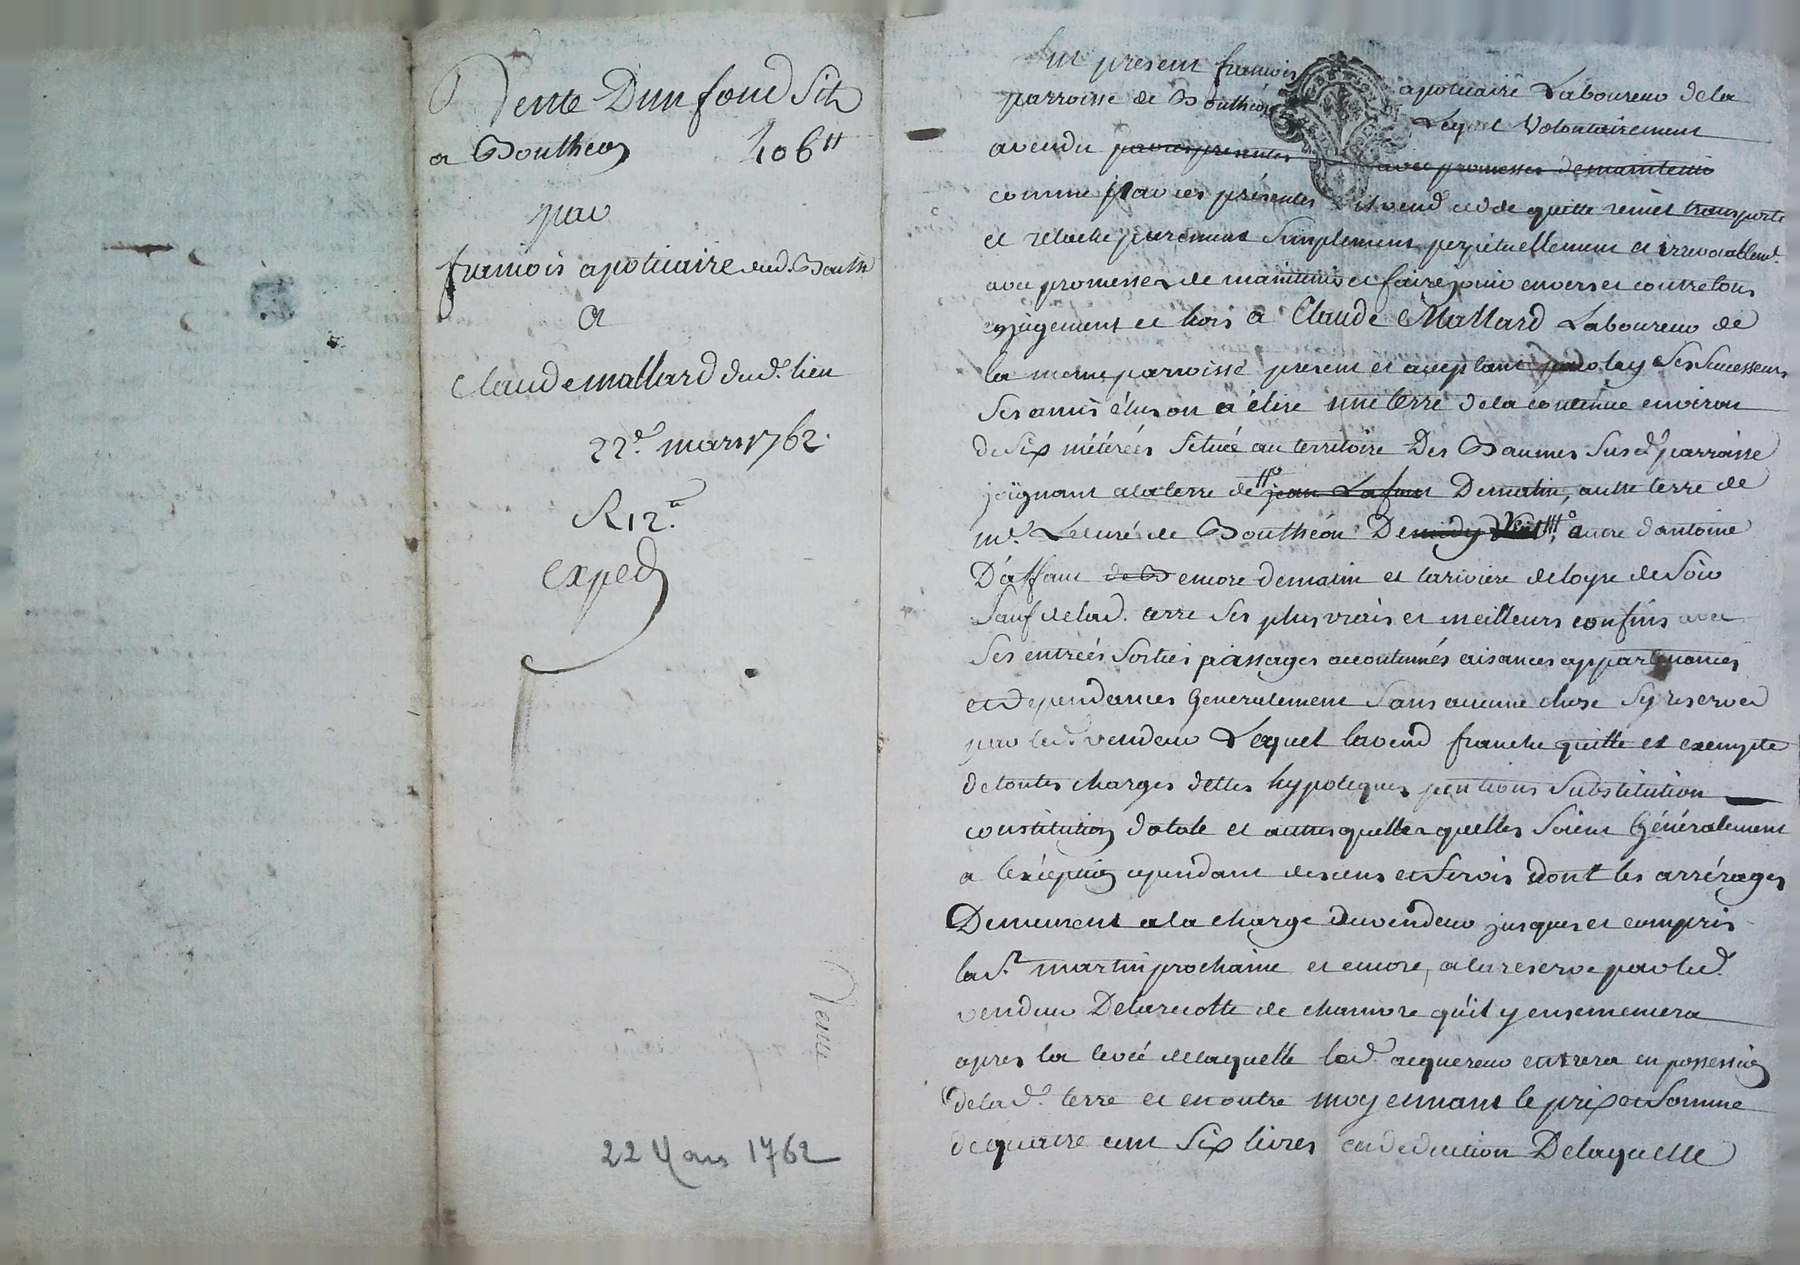 Vente Dun fond Sit
a Bouthéon 406tt
par
françois apoticaire dud. Bouth
a
Claude mallard dud. lieu
22e. mars 1762.
R 12.s
exped
Vente
22 Mars 1762
fut présent françois apoticaire Laboureur de la
parroisse de Bouthéon Lequel Volontairement
a vendu par ces presentes avec promesses de maintenir
comme par ces présentes il vend cede quitte remet transporte
et relache purement Simplement perpétuellement et irrevocablemt.
avec promesses de maintenir et faire jouir envers et contre tous
en jugement et hors a Claude Mallard Laboureur de
la meme parroisse présent et aceptant pour luy Ses Successeurs
Ses amis élus ou a élire une terre de la contenue environ
de Six métérées Située au territoire Des Baumes Sus d. parroisse
joignant a la terre de jean Lafont De matin, autre terre de
mr. Le curé de Bouthéon De midy autre d'antoine
D'affaut de B encore de matin et la riviere de loyre de Soir
Sauf de lad. terre Ses plus vrais et meilleurs confins avec
Ses entrées Sorties passages acoutumés aisances appartenances
et dépendances Généralement Sans aucune chose Sy reserver
par led. vendeur Lequel la vend franche quitte et exempte
de toutes charges dettes hypoteques pentions Substitution
constitution dotale et autres quelles quelles Soient Généralement
a l'exéption cependant des cens et Servis dont les arrérages
Demeurent a la charge du vendeur jusques et compris
la St. martin prochaine et encore, a la reserve par led.
vendeur De la recolte de chanvre qu'il y ensemencera
apres la levée de laquelle led. aquereur entrera en possession
de lad. terre et en outre moyennant le prix et Somme
de quatre cent Six livres en deduction De laquelle